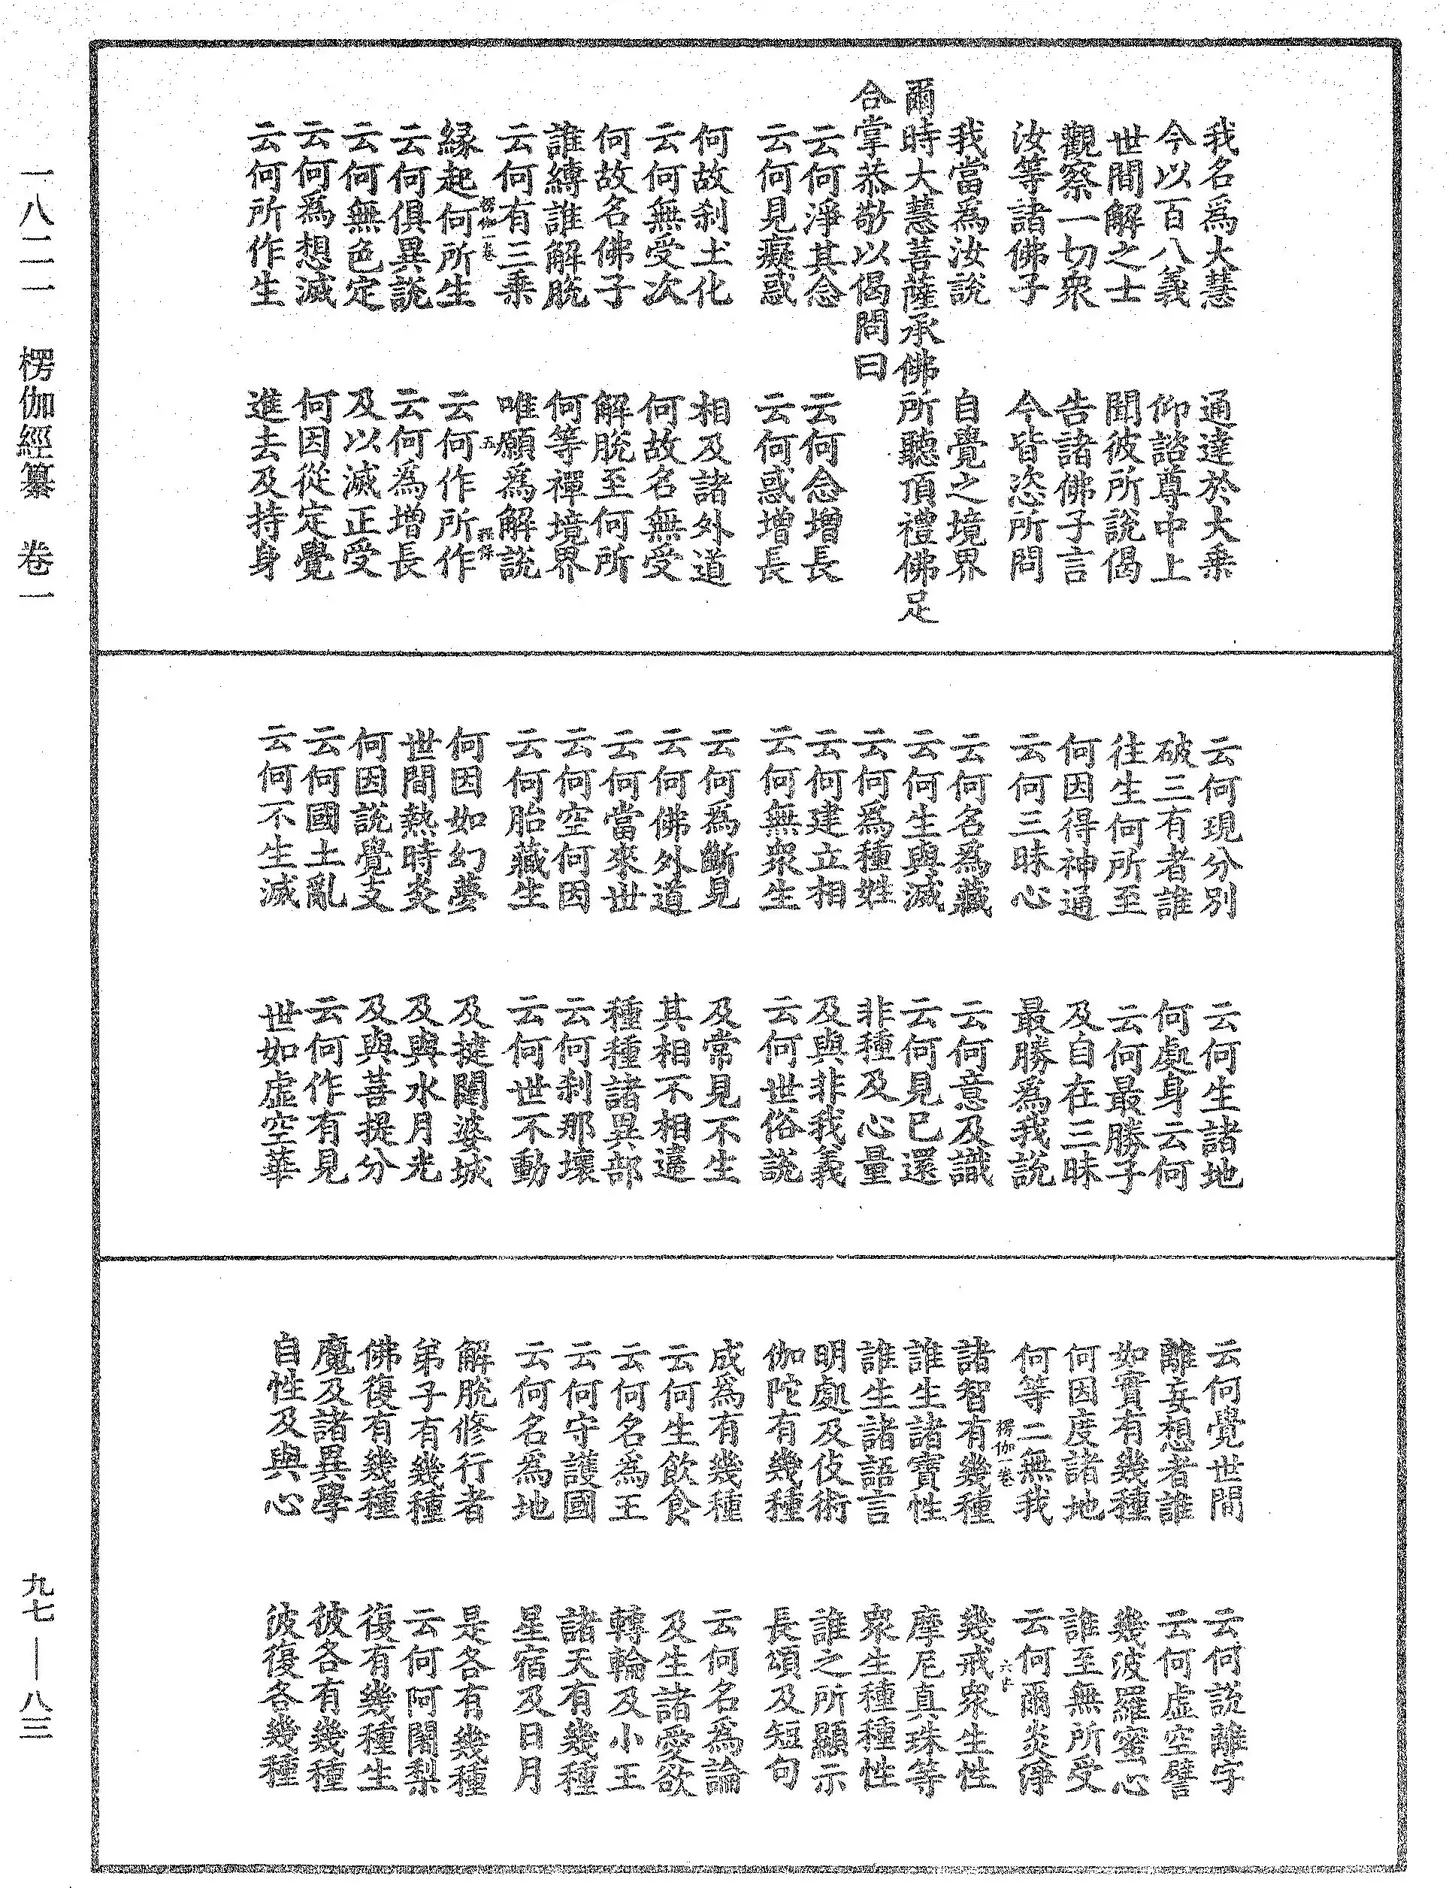 我名爲大慧　通達於大乘
今以百八義　仰諮尊中上
世間解之士　聞彼所說偈
觀察一切衆　告諸佛子言
汝等諸佛子　今皆恣所問
我當爲汝說　自覺之境界
爾時大慧菩薩承佛所聽頂禮佛足
合掌恭敬以偈問曰
云何淨其念　云何念增長
云何見癡惑　云何惑增長
何故刹土化　相及諸外道
云何無受次　何故名無受
何故名佛子　解脫至何所
誰縛誰解脫　何等禪境界
云何有三乘　唯願爲解說
楞伽一卷　五
緣起何所生　云何作所作
云何俱異說　云何爲增長
云何無色定　及以滅正受
云何爲想滅　何因從定覺
云何所作生　進去及持身
云何現分別　云何生諸地
破三有者誰　何處身云何
往生何所至　云何最勝子
何因得神通　及自在三昧
云何三昧心　最勝爲我說
云何名爲藏　云何意及識
云何生與滅　云何見已還
云何爲種姓　非種及心量
云何建立相　及與非我義
云何無衆生　云何世俗說
云何爲斷見　及常見不生
云何佛外道　其相不相違
云何當來世　種種諸異部
云何空何因　云何刹那壞
云何胎藏生　云何世不動
何因如幻夢　及揵闥婆城
世間熱時炎　及與水月光
何因說覺支　及與菩提分
云何國土亂　云何作有見
云何不生滅　世如虛空華
云何覺世間　云何說離字
離妄想者誰　云何虛空譬
如實有幾種　幾波羅蜜心
何因度諸地　誰至無所受
何等二無我　云何爾炎淨
楞伽一卷　六
諸智有幾種　幾戒衆生性
誰生諸寶性　摩尼真珠等
誰生諸語言　衆生種種性
明處及伎術　誰之所顯示
伽陀有幾種　長頌及短句
成爲有幾種　云何名爲論
云何生飲食　及生諸愛欲
云何名爲王　轉輪及小王
云何守護國　諸天有幾種
云何名爲地　星宿及日月
解脫修行者　是各有幾種
弟子有幾種　云何阿闍梨
佛復有幾種　復有幾種生
魔及諸異學　彼各有幾種
自性及與心　彼復各幾種
一八二一　楞伽經纂　卷一
九七—八三